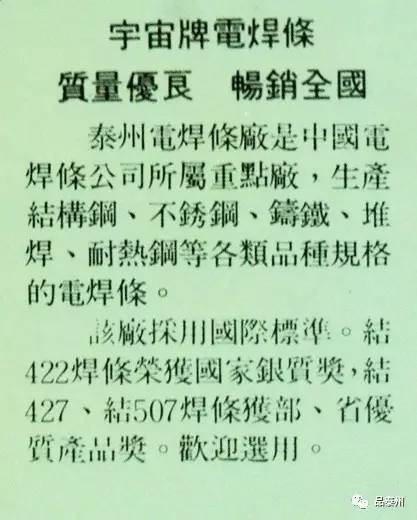 宇宙牌電焊條
質量優良　暢銷全國
泰州電焊條廠是中國電
焊條公司所屬重點廠，生產
結構鋼、不銹鋼、鑄鐵、堆
焊、耐熱鋼等各類品種規格
的電焊條。
該廠採用國際標準。結
422焊條榮獲國家銀質獎，結
427、結507焊條獲部、省優
質產品獎。歡迎選用。
品泰州